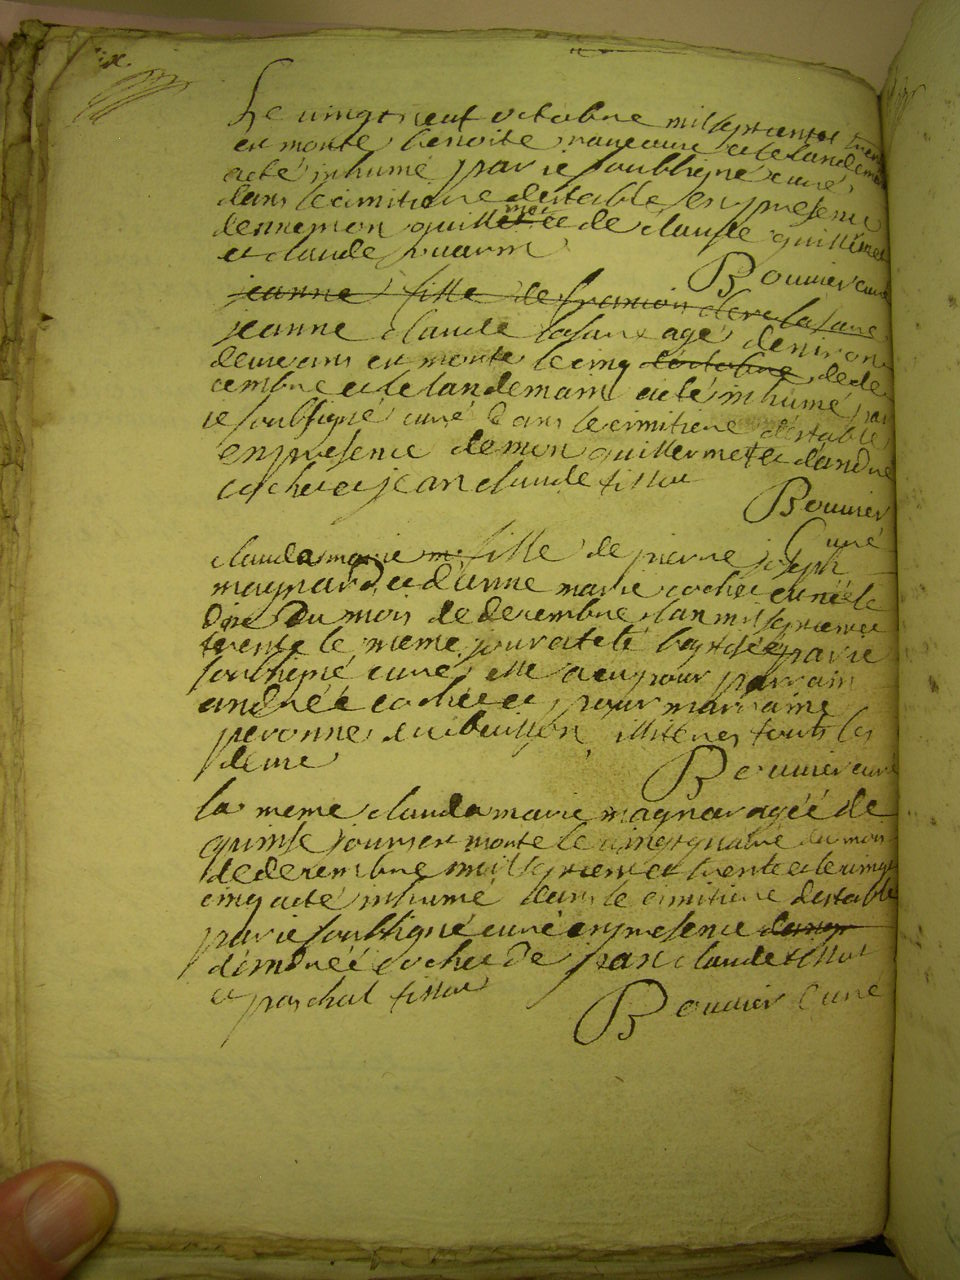 Le vingt neuf octobre mil sept cent et trente
est morte benoite et le landemain
a eté inhumé par ie soubsigné curé
dans le cimitiere destable en presence
de guillermet et de claude guillermet
et claude
Bouvier curé
jeanne fille de
jeanne claude agé denviron
deux ans est morte le cinq doctobre de de
cembre et le landemain a eté inhumé par
ie soubsigné curé dans le cimitiere destable
en presence de mon guillermet et dandré
cochet et jean claude tissot
Bouvier
Curé
clauda marie fille de pierre joseph
magnard et danne marie cochet est née le
dix du mois de decembre lan mil sept cent et
trente le meme jour a eté baptisée par ie
soubsigné curé elle a eu pour parrain
andreé cochet et pour marraine
peronne du buisson illiteres touts les
deux
Bouvier curé
la meme clauda marie magnar ageé de
quinse jours est morte le vingt quatre du mois
de decembre mil sept cent et trente et le vingt
cinq a eté inhumé dans le cimitiere destable
par ie soubsigné curé en presence
dandreé cochet de jean claude tissot
et paschal tissot
Bouvier Curé